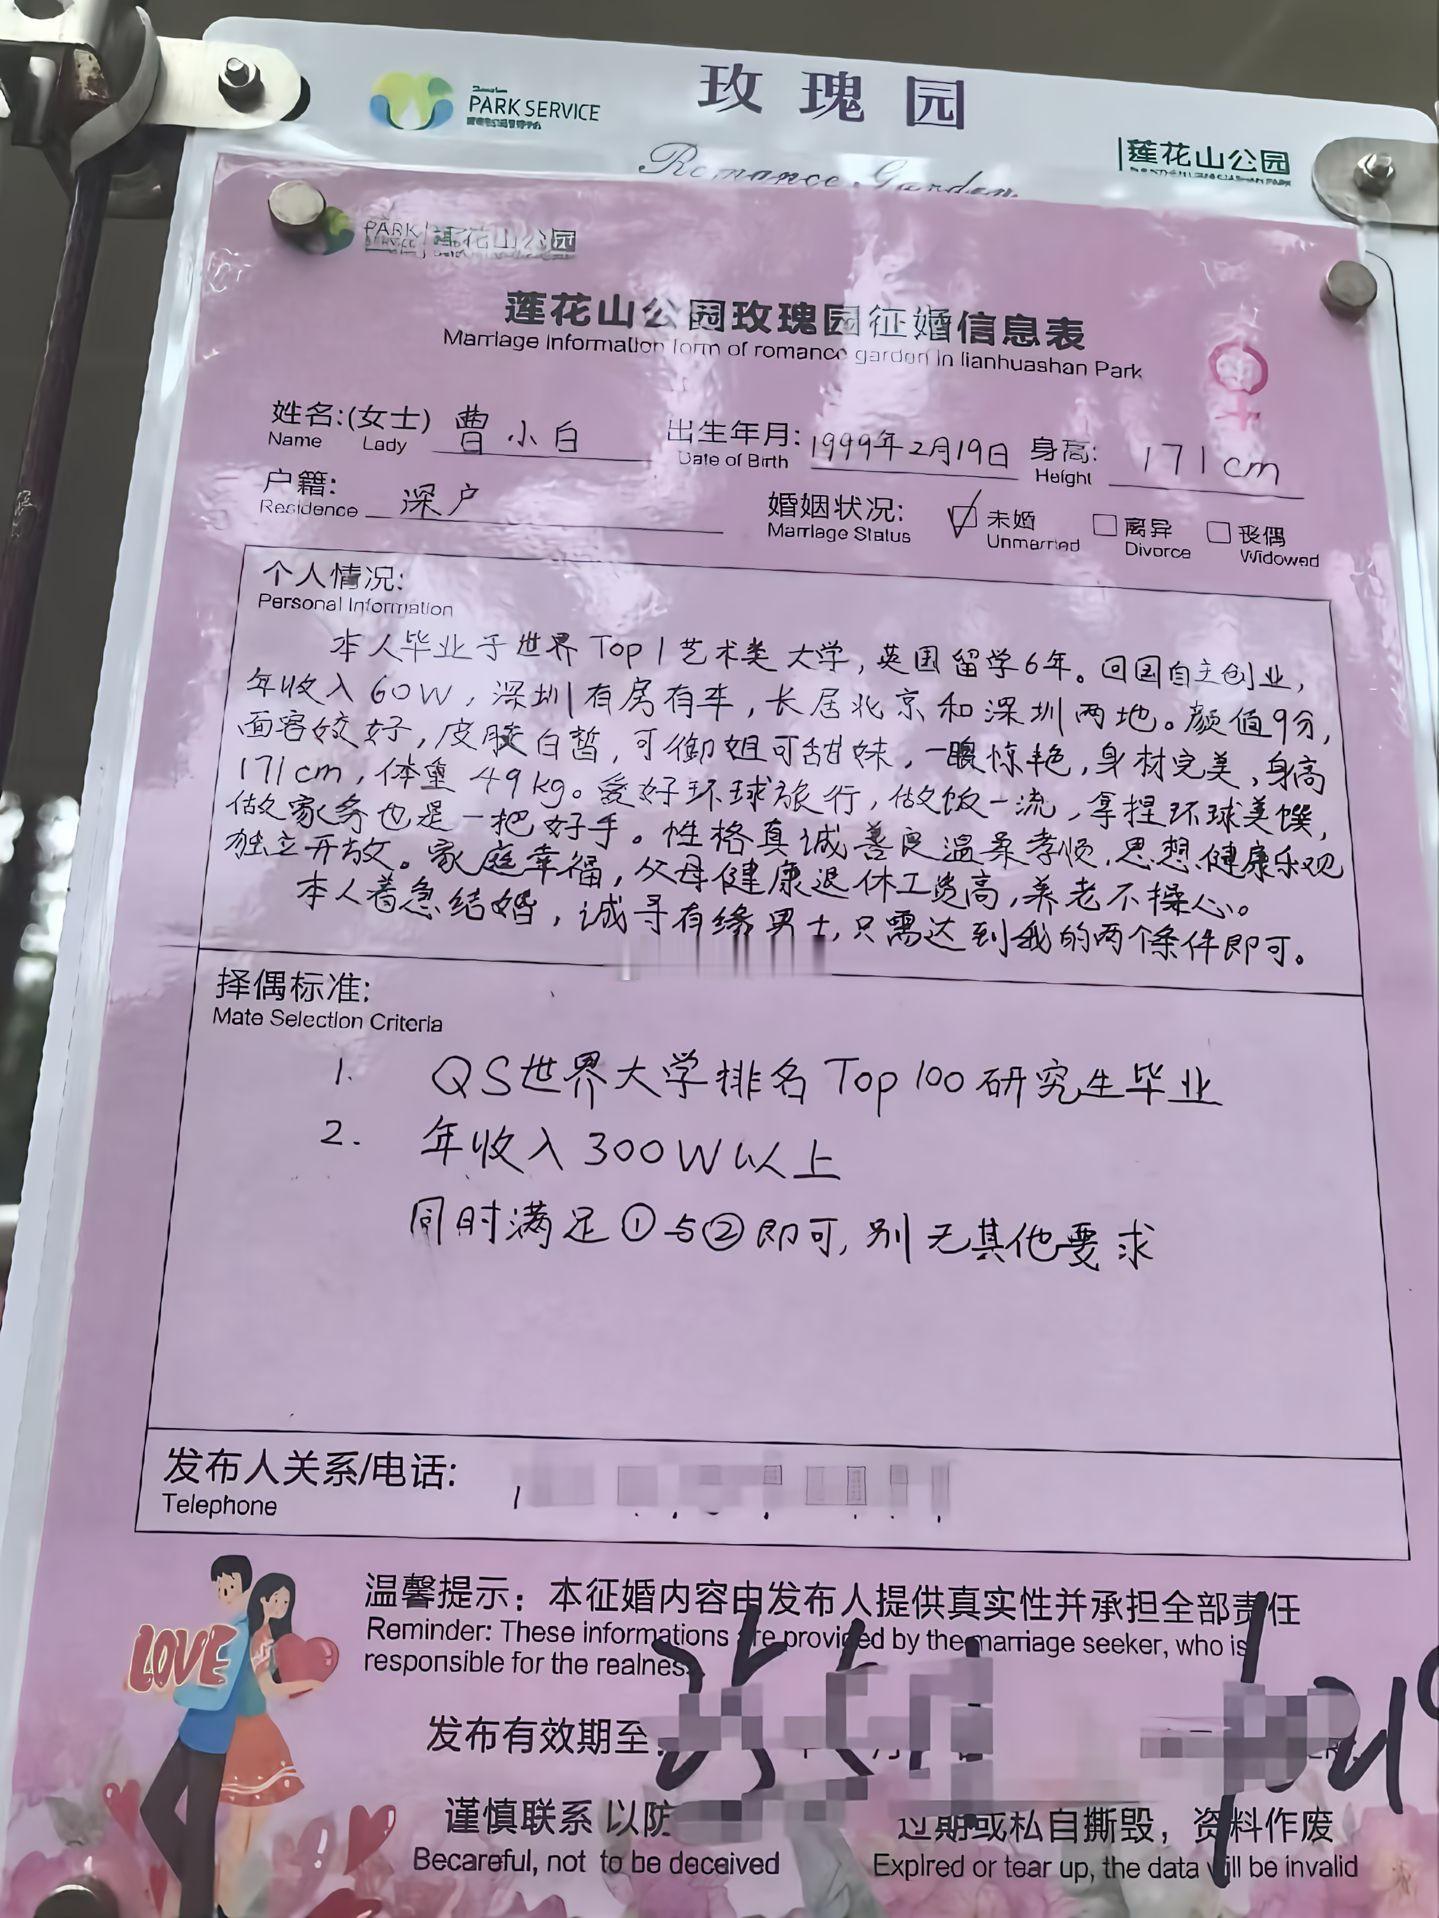 玫瑰园
PARK SERVICE
Romance Garden
莲花山公园
PARK SERVICE 莲花山公园
莲花山公园玫瑰园征婚信息表
Marriage information form of romance garden in lianhuashan Park
姓名:(女士) 曹小白 出生年月: 1999年2月19日 身高: 171cm
Name Lady Date of Birth Height
户籍: 深户 婚姻状况: 未婚 离异 丧偶
Residence Marriage Status Unmarried Divorce Widowed
个人情况:
Personal Information
本人毕业于世界Top1艺术类大学,英国留学6年。回国自主创业,
年收入60W,深圳有房有车,长居北京和深圳两地。颜值9分,
面容姣好,皮肤白皙,可御姐可甜妹,一眼惊艳,身材完美,身高
171cm,体重49kg。爱好环球旅行,做饭一流,拿捏环球美馔,
做家务也是一把好手。性格真诚善良温柔孝顺,思想健康乐观
独立开放。家庭幸福,父母健康退休工资高,养老不操心。
本人着急结婚,诚寻有缘男士,只需达到我的两个条件即可。
择偶标准:
Mate Selection Criteria
1. QS世界大学排名Top100研究生毕业
2. 年收入300W以上
同时满足①与②即可,别无其他要求
发布人关系/电话: 1
Telephone
LOVE
温馨提示：本征婚内容由发布人提供真实性并承担全部责任
Reminder: These informations are provided by the marriage seeker, who is
responsible for the realness
发布有效期至:
谨慎联系 以防 过期或私自撕毁，资料作废
Becareful, not to be deceived Expired or tear up, the data will be invalid